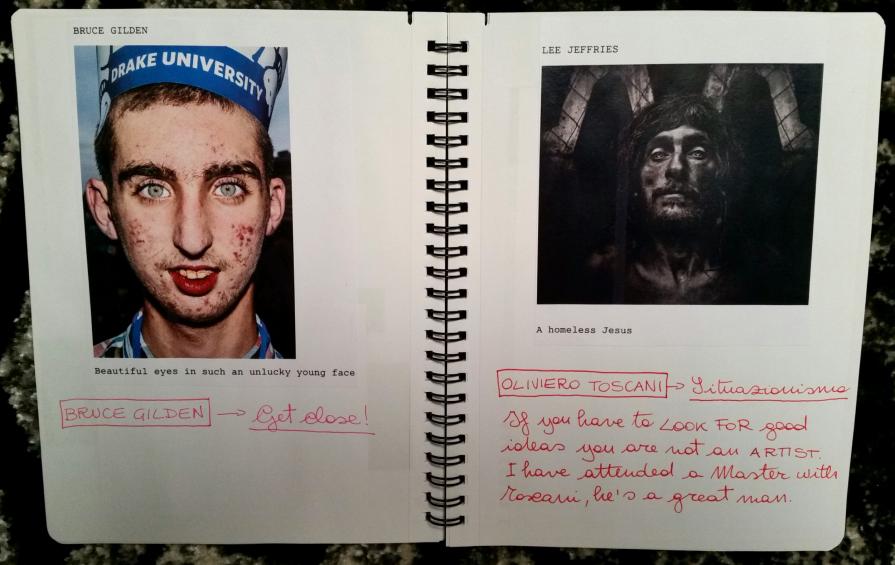 BRUCE GILDEN
DRAKE UNIVERSITY
Beautiful eyes in such an unlucky young face
BRUCE GILDEN → Get close!
LEE JEFFRIES
A homeless Jesus
OLIVIERO TOSCANI → Situazionismo
If you have to LOOK FOR good
ideas you are not an ARTIST.
I have attended a Master with
Toscani, he's a great man.